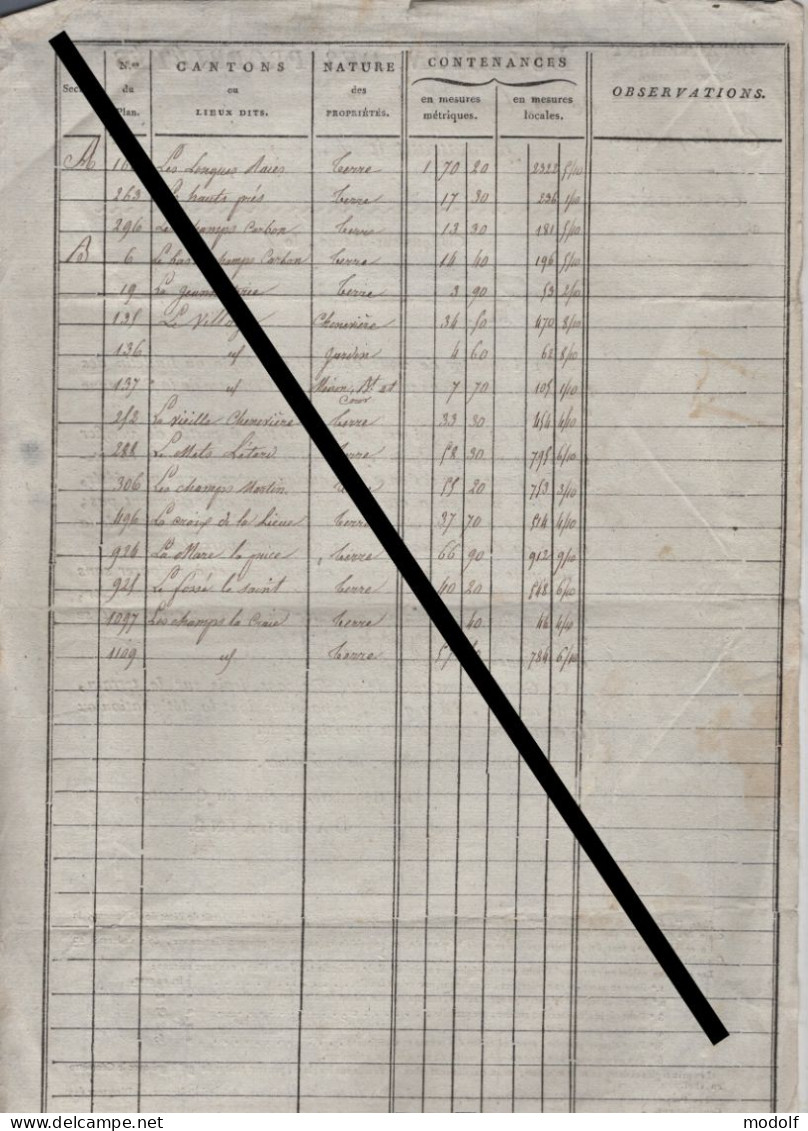 N.os CANTONS NATURE CONTENANCES
du ou des en mesures en mesures OBSERVATIONS.
Plan. LIEUX DITS. PROPRIÉTÉS. métriques. locales.
A Les Longues Raies terre 1 70 20 2322 5/10
263 hauts prés terre 17 30 236 1/10
296 champs Carbon terre 13 30 181 5/10
B 6 Le bas champs Carbon terre 14 40 196 5/10
19 La terre 3 90 53 2/10
135 Le Village Chenevière 34 50 470 8/10
136 id Jardin 4 60 62 8/10
137 id Maison, Bt et 7 70 105 1/10
Cour
252 La vieille Chenevière terre 33 30 454 4/10
288 Le terre 58 30 795 6/10
306 Les champs Martin 55 20 753 3/10
496 La croix de la Lieue terre 37 70 514 4/10
924 La Mare la terre 66 90 912 9/10
925 Le fossé le saint terre 40 20 548 6/10
1097 Les champs la Craie terre 40 46 4/10
1109 id terre 57 784 6/10
delcampe.net modolf